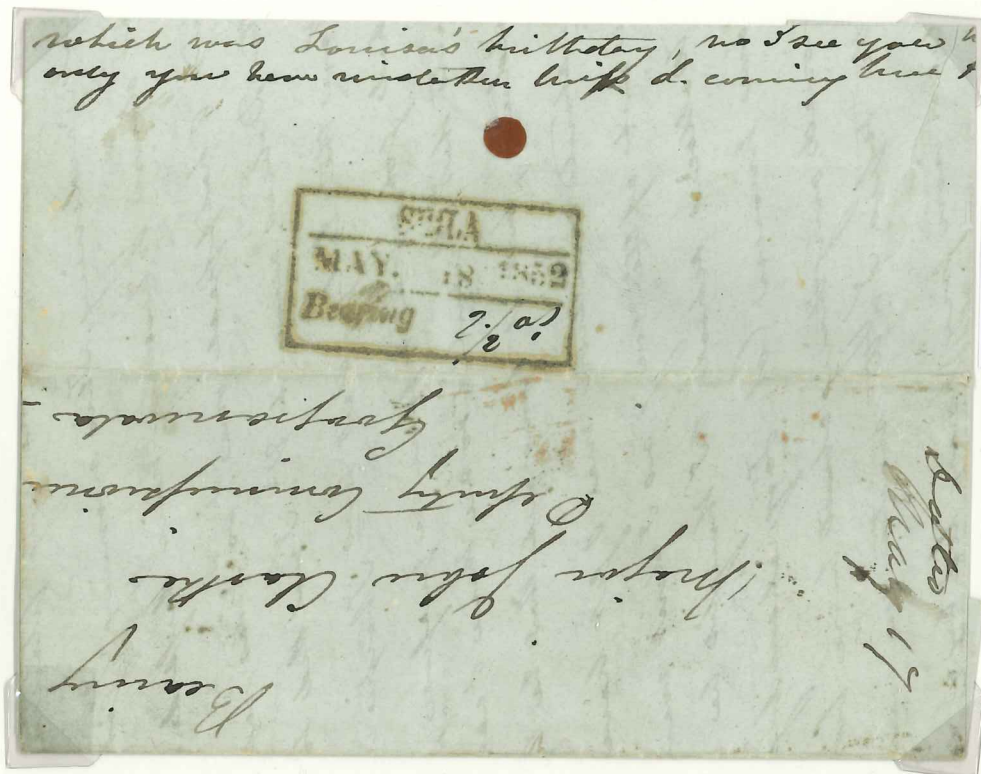 which was Louisa's birthday, no I see you
only you have mistaken coming here &
SIMLA
MAY. 18 1852
Bearing
Bearing
Major John Clarke
Deputy Commissioner
Goojranwala
May 17